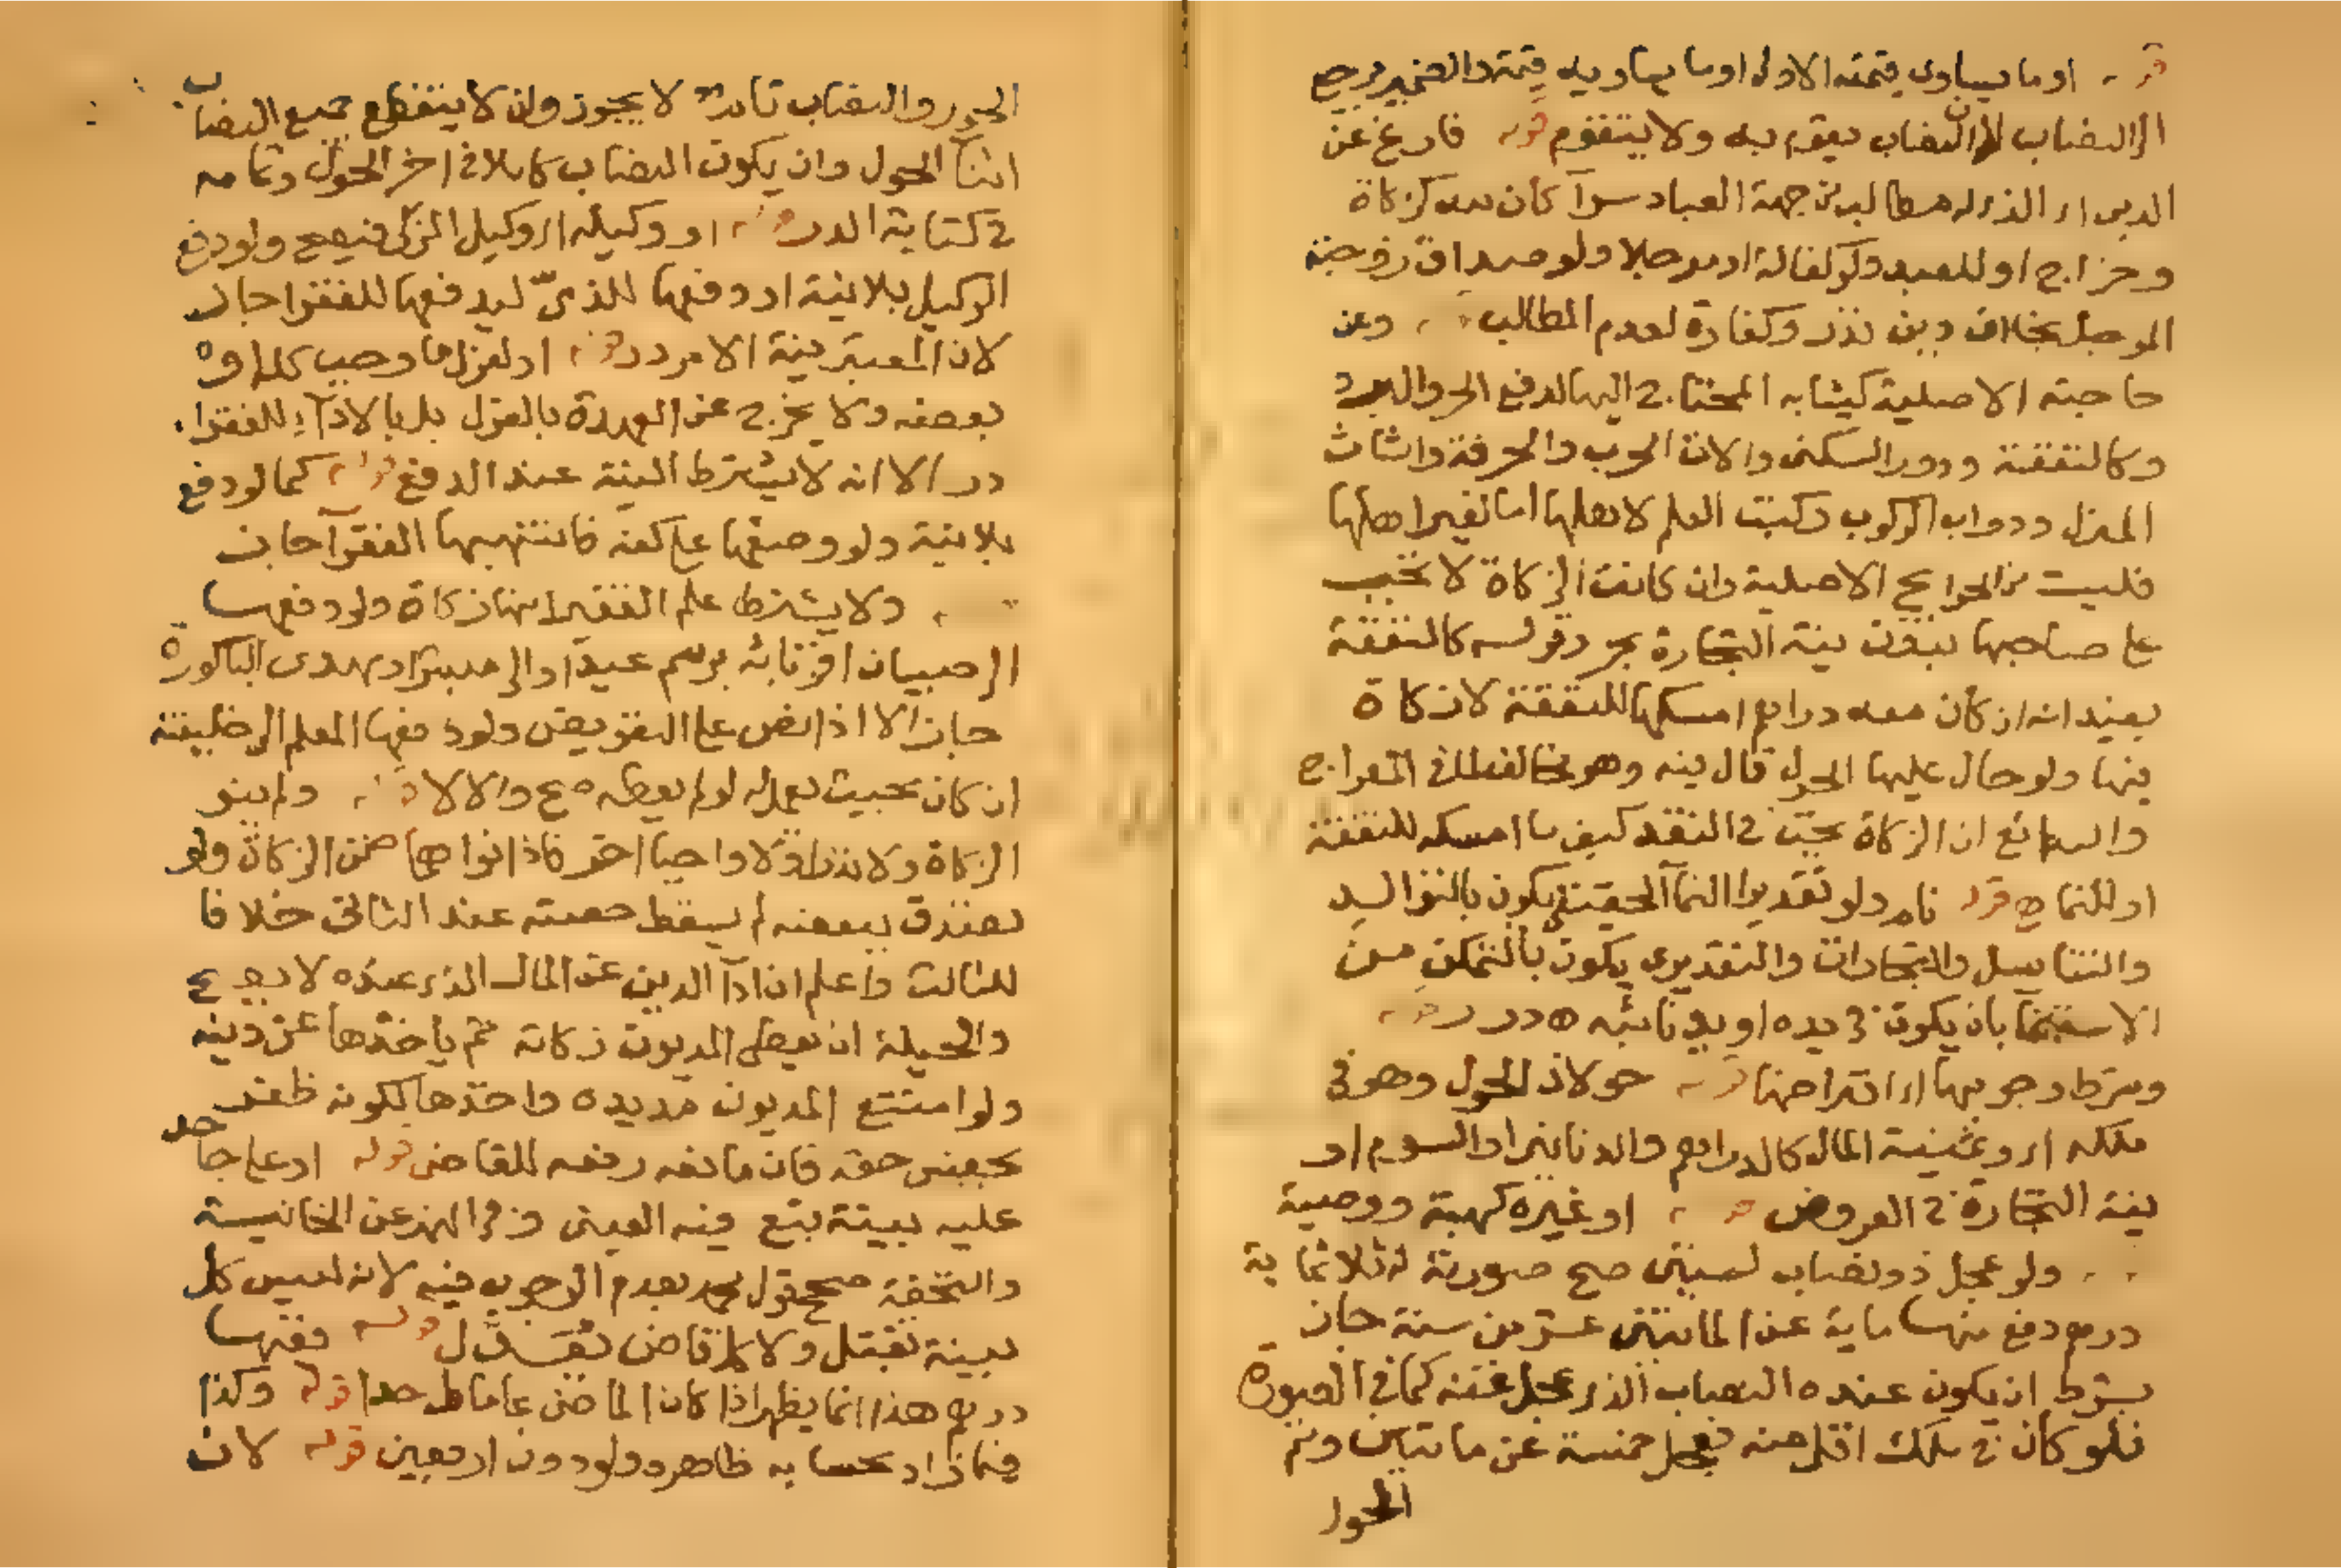 قوله او ما يساوى قيمته الاولى او ما يساويه قيمته والضمير يرجع
الى النصاب لان النصاب يقوم به ولا يتقوم قوله فارغ عن
الدين اى الذى له مطالب من جهة العباد سوآ كان لله كزكاة
وخراج او للعبد ولو كفالة او موجلا ولو صداق زوجته
الموجل بخلاف دين نذر وكفارة لعدم المطالب وعن
حاجته الاصلية كثيابه المحتاج اليها لدفع الحر والبرد
وكالنفقة ودور السكنى والات الحرب والحرفة واثاث
المنزل ودواب الركوب وكتب العلم لاهلها اما لغير اهلها
فليست من الحوايج الاصلية وان كانت الزكاة لا تجب
على صاحبها بدون نية التجارة بحر قوله كالنفقة
يفيد انه ان كان معه دراهم امسكها للنفقة لا زكاة
فيها ولو حال عليها الحول قال فيه وهو مخالف لما فى المعراج
والبدائع ان الزكاة تجب فى النقد كيف ما امسكه للنفقة
او للنما قوله نام ولو تقديرا النمآ الحقيقى يكون بالتوالد
والتناسل والتجارات والتقديرى يكون بالتمكن من
الاستنمآ بان يكون فى يده او يد نائبه درر قوله
وشرط وجوبها اى افتراضها قوله حولان الحول وهو فى
ملكه اى وثمنية المال كالدراهم والدنانير او السوم او
نية التجارة فى العروض قوله او غيره كهبة ووصية
ولو عجل ذو نصاب لسنين صح صورته له ثلاثماية
درهم دفع منها ماية عن المائتين عشرين سنة جاز
بشرط ان يكون عنده النصاب الذى عجل عنه كما فى الصورة
فلو كان فى ملك اقل منه فعجل خمسة عن مائتين وتم
الحول
الحول والنصاب لا يجوز وان لا ينقطع جميع النصاب
اثنآ الحول وان يكون النصاب كاملا فى اخر الحول وتمامه
فى كتابة الدر قوله او وكيله اى وكيل المزكى فيصح ولو دفع
الوكيل بلا نية او دفعها للذمى ليدفعها للفقرا جاز
لان المعتبر نية الامر در قوله او لعزل ما وجب كله او
بعضه ولا يخرج عن العهدة بالعزل بل بالادآء للفقرا
در الا انه لا يشترط النية عند الدفع قوله كما لو دفع
بلا نية ولو وضعها على كفه فانتهبها الفقرآ جاز
ولا يشترط علم الفقير انها زكاة ولو دفعها
الى صبيان اقربائه برسم عيد او الى مبشر او مهدى الباكورة
جاز الا اذا نص على التعويض ولو دفعها المعلم الى خليفته
ان كان بحيث يعمل له لو لم يعطه صح والا لا قوله ولم ينو
الزكاة ولا نذرا ولا واجبا اخر فاذا نواها ضمن الزكاة ولو
تصدق ببعضه لم يسقط حصته عند الثانى خلافا
للثالث واعلم ان ادآ الدين عن المال الذى عنده لا يصح
والحيلة ان يعطى المديون زكاته ثم ياخذها عن دينه
ولو امتنع المديون مد يده واخذها لكونه ظفر
بجنس حقه فان مانعه رفعه للقاضى قوله او على جاحد
عليه بينة تبع فيه العينى وفى النهر عن الخانية
والتحفة صحح قول محمد بعدم الوجوب فيه لانه ليس كل
بينة تقبل ولا كل قاض يعدل قوله ففيها
درهم هذا انما يظهر اذا كان الماضى عاما واحدا قوله وكذا
فيما زاد بحسابه ظاهره ولو دون اربعين قوله لان